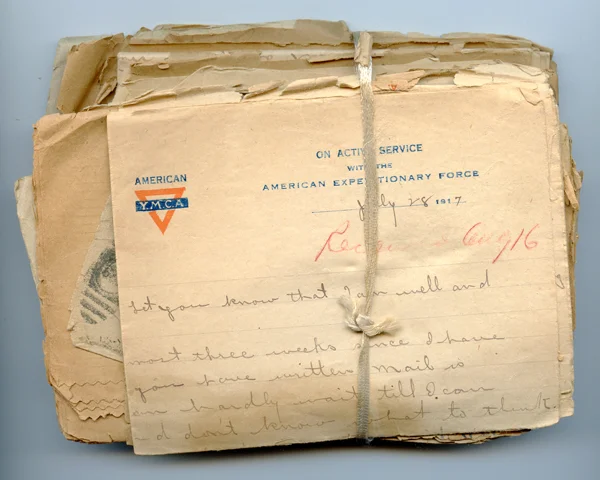 ON ACTIVE SERVICE
WITH THE
AMERICAN EXPEDITIONARY FORCE
AMERICAN
Y.M.C.A.
July 28 1917
Aug 16
let you know that I am well and
most three weeks since I have
you have written mail is
hardly wait till I can
and don't know what to think